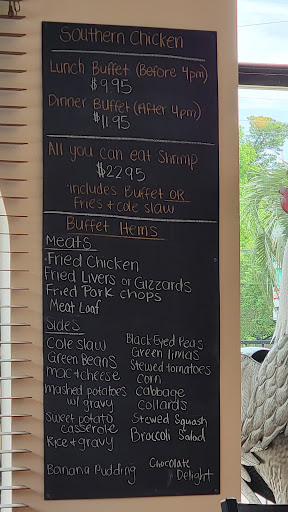 Southern Chicken
Lunch Buffet (Before 4pm)
$9.95
Dinner Buffet (After 4pm)
$11.95
All you can eat Shrimp
$22.95
includes Buffet OR
Fries & cole slaw
Buffet Items
Meats
Fried Chicken
Fried Livers or Gizzards
Fried Pork chops
Meat Loaf
Sides
Cole slaw
Green Beans
mac + cheese
mashed potatoes
w/ gravy
Sweet potato
casserole
Rice + gravy
Black Eyed Peas
Green limas
Stewed tomatoes
corn
cabbage
collards
Stewed Squash
Broccoli Salad
Banana Pudding
Chocolate
Delight